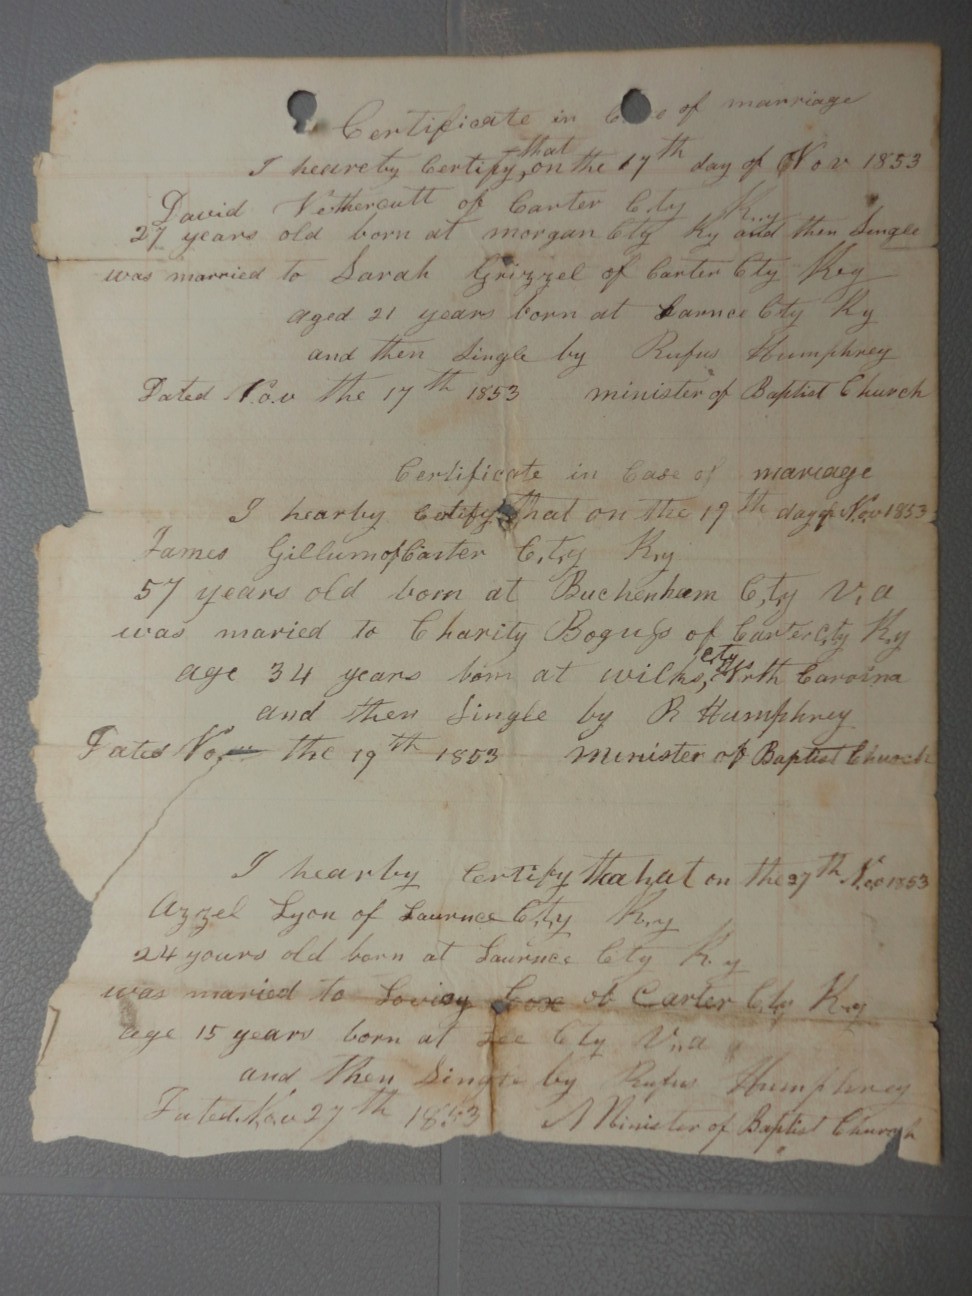 Certificate in Case of marriage
I heareby Certify, that on the 17th day of Nov 1853
David Nethercutt of Carter Cty Ky
27 years old born at morgan Cty Ky and then Single
was married to Sarah Grizzel of Carter Cty Ky
aged 21 years born at Larnce Cty Ky
and then Single by Rufus Humphrey
Dated Nov the 17th 1853 minister of Baptist Church
Certificate in Case of mariage
I hearby Cetify that on the 19th day of Nov 1853
James Gillum of Carter Cty Ky
57 years old born at Buchenham Cty Va
was maried to Charity Boguss of Carter Cty Ky
age 34 years born at wilks, cty North Caroina
and then Single by R Humphrey
Dated Nov the 19th 1853 minister of Baptist Church
I hearby Certify thahat on the 27th Nov 1853
Azzel Lyon of Laurnce Cty Ky
24 yours old born at Laurnce Cty Ky
was maried to Cox of Carter Cty Ky
age 15 years born at Lee Cty Va
and then Single by Rufus Humphrey
Dated Nov 27th 1853 A Minister of Baptist Church